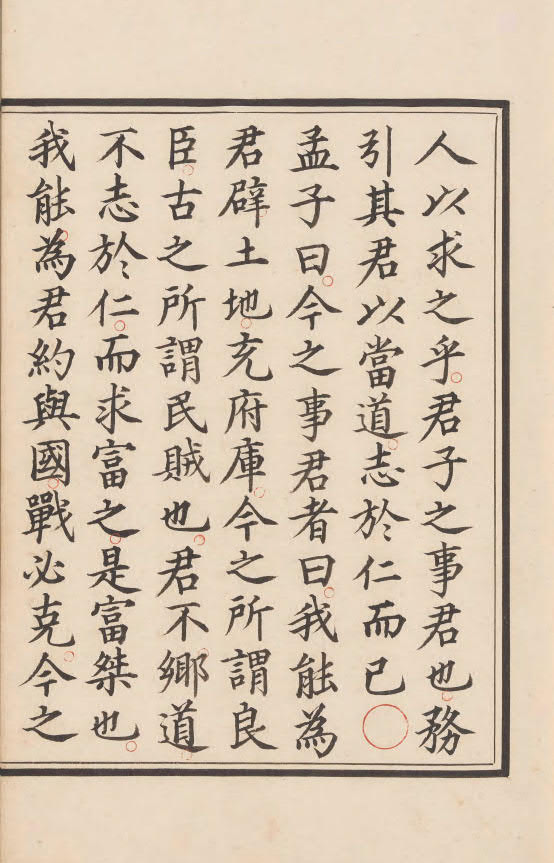 人以求之乎。君子之事君也。務
引其君以當道。志於仁而已○
孟子曰。今之事君者曰。我能為
君辟土地。充府庫。今之所謂良
臣。古之所謂民賊也。君不鄉道。
不志於仁。而求富之。是富桀也。
我能為君約與國。戰必克。今之